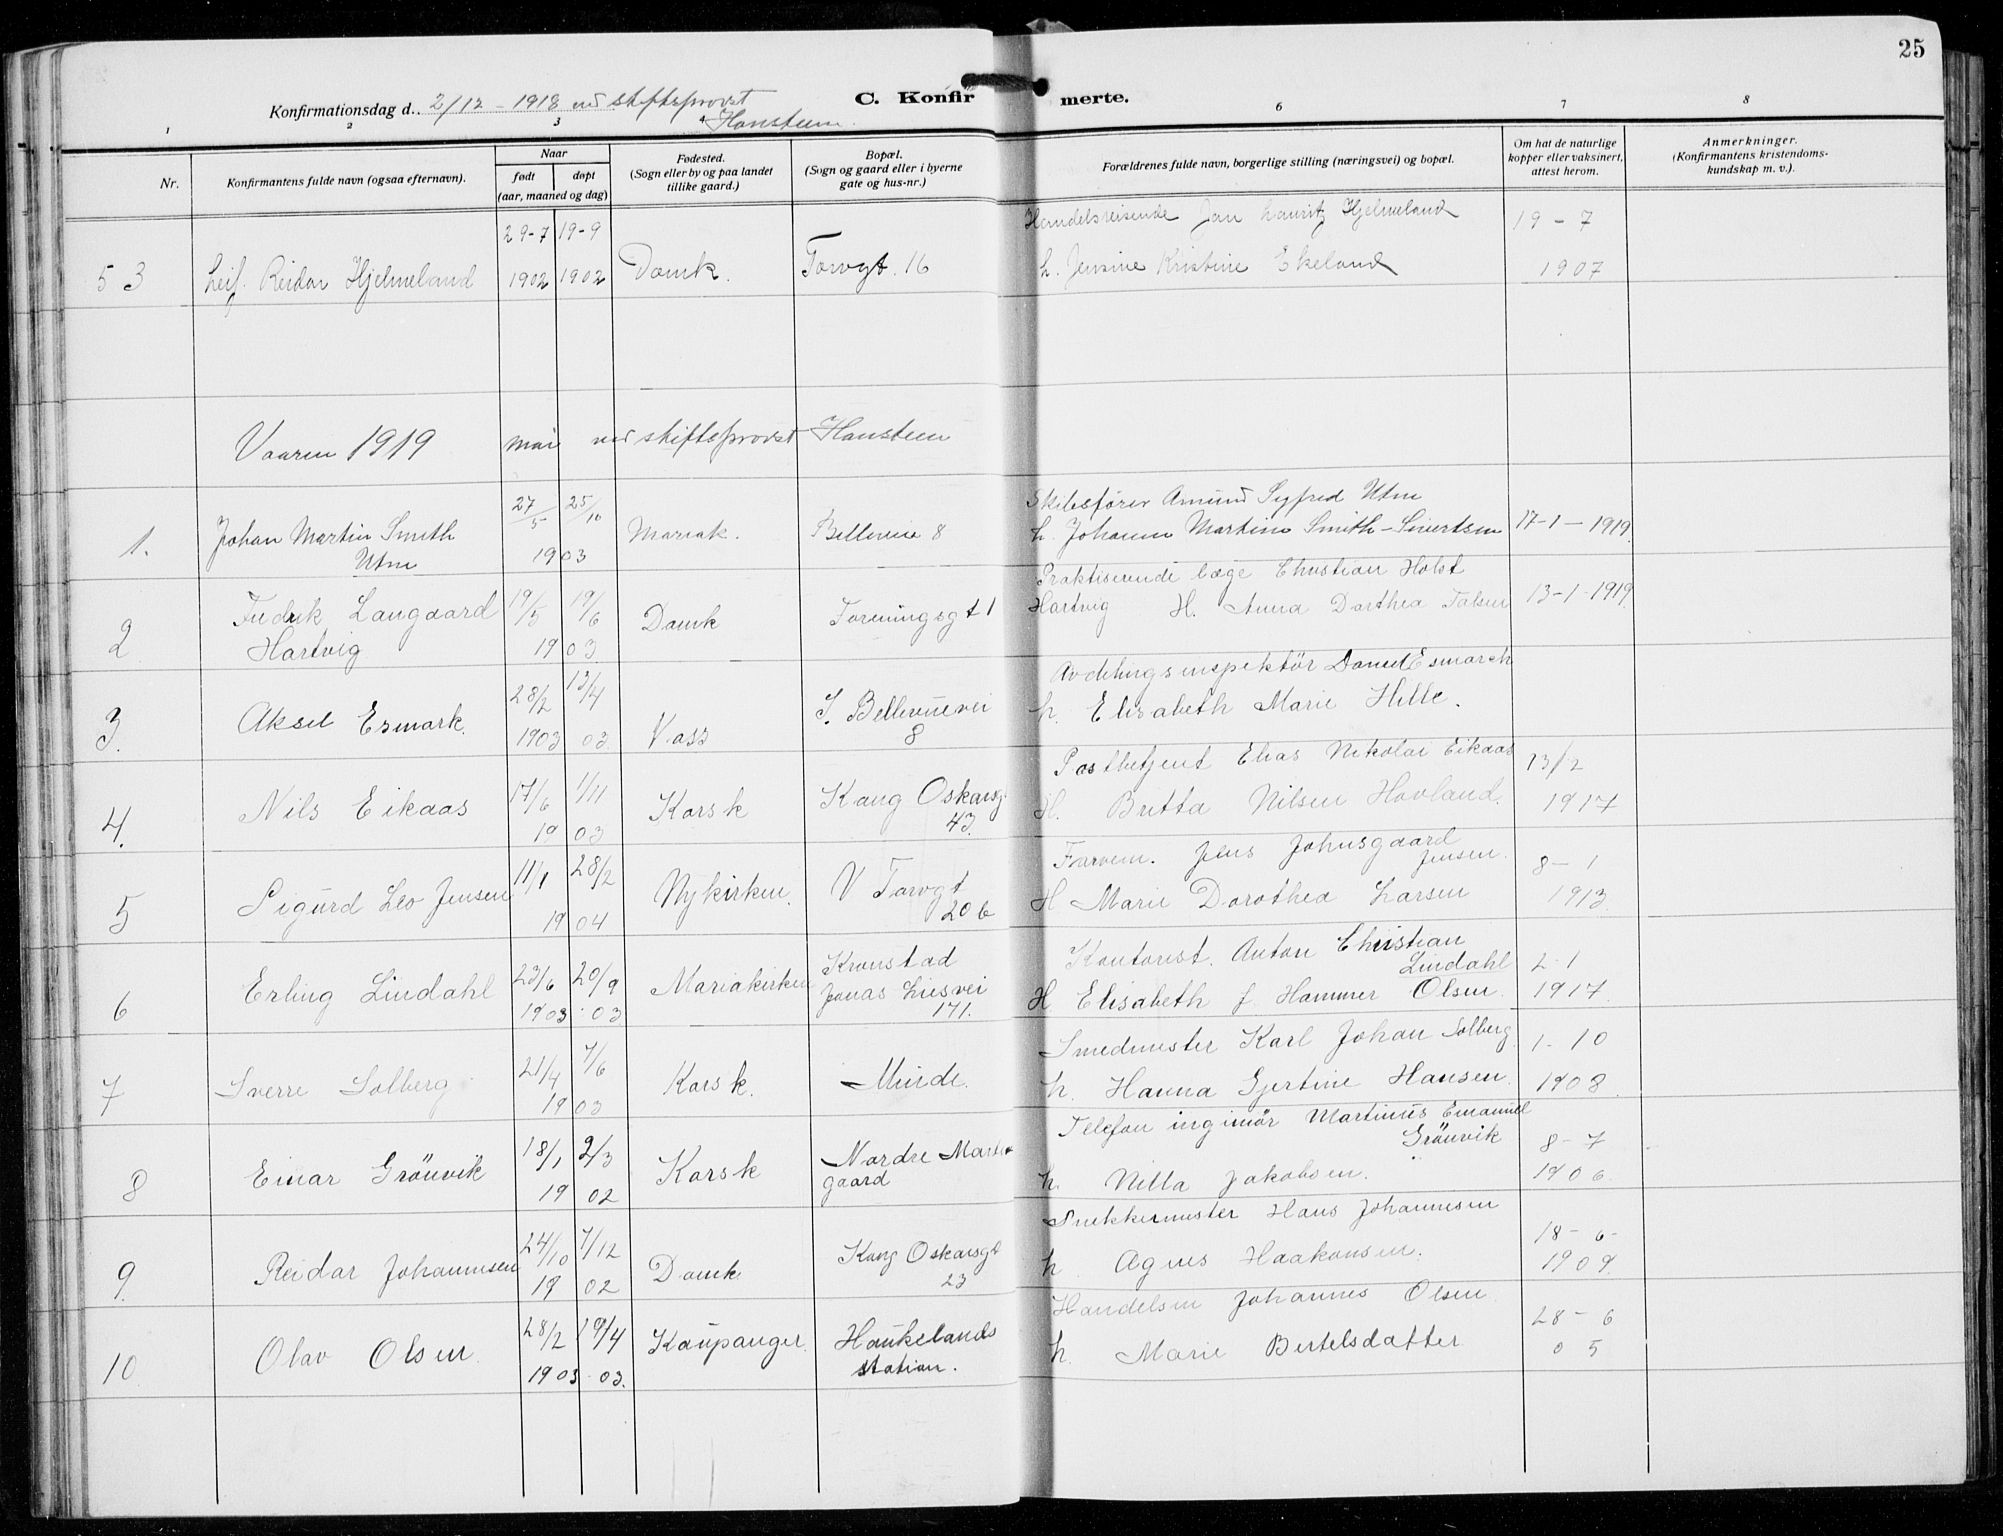 25
C. Konfirmerte.
Konfirmationsdag d. 2/12 - 1918 ved stiftsprovst
Hansteen.
1 2 3 4 6 7 8
Nr.
Konfirmantens fulde navn (ogsaa efternavn).
Naar
født døpt
(aar, maaned og dag)
Fødested.
(Sogn eller by og paa landet
tillike gaard.)
Bopæl.
(Sogn og gaard eller i byerne
gate og hus-nr.)
Forældrenes fulde navn, borgerlige stilling (næringsvei) og bopæl.
Om hat de naturlige
kopper eller vaksinert,
attest herom.
Anmerkninger.
(Konfirmantens kristendoms-
kundskap m. v.).
29-7 19-9 Handelsreisende Jan Lauritz Hjelmeland 19 - 7
53 Leif Reidar Hjelmeland 1902 1902 Domk. Torvgt. 16 h. Jensine Kristine Ekeland 1907
Vaaren 1919 mai ved stiftsprovst Hansteen
27/5 25/10 Skibsfører Amund Sigfred Utne
1. Johan Martin Smith Mariak. Bellevue 8 h. Johanne Martine Smith-Sivertsen 17-1-1919.
Utne 1903
19/5 19/6 Praktiserende læge Christian Holst
2 Fredrik Langaard Domk Foreningsgt 1 Hartvig H. Anna Dorthea Talsen 13-1-1919.
Hartvig 1903
28/2 13/4 Avdelingsinspektör Daniel Esmarch
3. Aksel Esmark. Voss J. Bellevuevei h. Elisabeth Marie Hille.
1903 03 8
17/6 1/11 Postbetjent Elias Nikolai Eikaas 13/2
4. Nils Eikaas Korsk Kong Oskarsg. H. Britta Nilsen Hovland. 1917
1903 43.
11/1 28/2 Farvem. Jens Johnsgaard
Jensen. 8-1
5 Sigurd Leo Jensen Nykirken. V Torvgt H Marie Dorothea Larsen 1913
1904 20 b
23/6 20/9 Kronstad Kontorist. Anton Christian
Lindahl 2-1
6 Erling Lindahl Mariakirken Jonas Liesvei H. Elisabeth f. Hammer Olsen. 1917
1903 03 171.
21/4 7/6 Smedmester Karl Johan Solberg 1-10
7 Sverre Solberg Korsk. Minde. h. Hanna Gjertine Hansen. 1908
1903
18/1 2/3 Telefon ingeniör Martinus Emanuel
Grönvik 8-7
8 Einar Grönvik Korsk Nordre h. Nilla Jakobsen. 1906
1902 gaard
24/10 7/12 Snekkermester Hans Johannesen 18-6-
9. Reidar Johannesen Domk Kong Oskarsgt h Agnes Haakonsen. 1909.
1902 23
28/2 19/4 Handelsm Johannes Olsen 28-6
10 Olav Olsen Kaupanger. Haukelands h. Marie Bertelsdatter 05
1903 03. station.